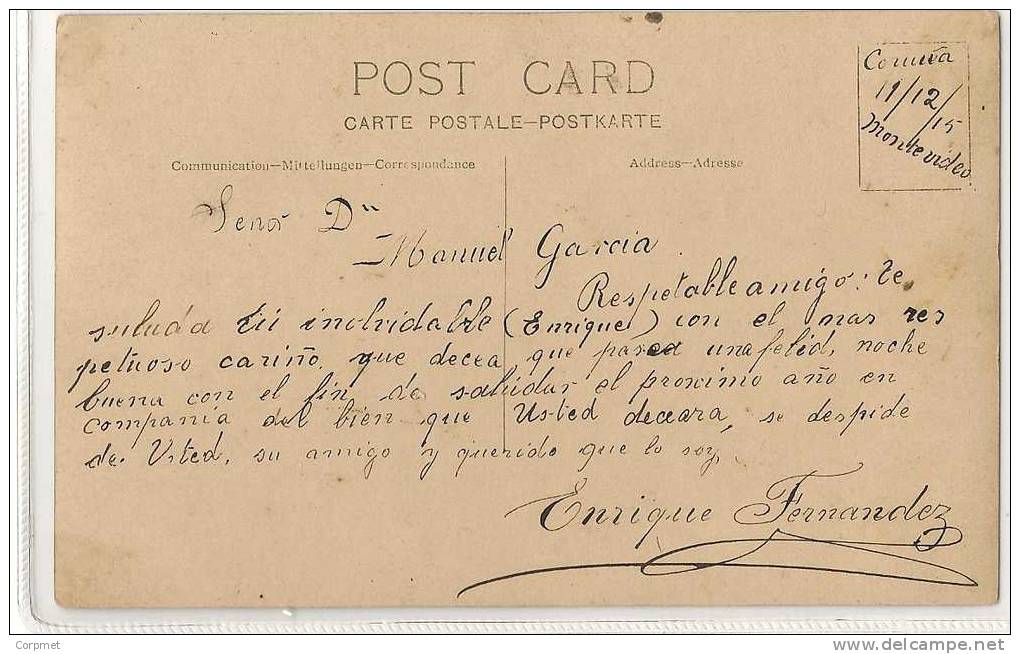 POST CARD
CARTE POSTALE–POSTKARTE
Communication–Mitteilungen–Correspondance
Address–Adresse
Coruña
11/12/15
Montevideo.
Señor Dn
Manuel Garcia
Respetable amigo: te
saluda tú inolvidable (Enrique) con el mas res
petuoso cariño, que decea que pasea una felid, noche
buena con el fin de saludar el proximo año en
compania del bien que Usted deceara, se despide
de Usted, su amigo y querido que lo soy,
Enrique Fernandez
Corpmet
delcampe.net